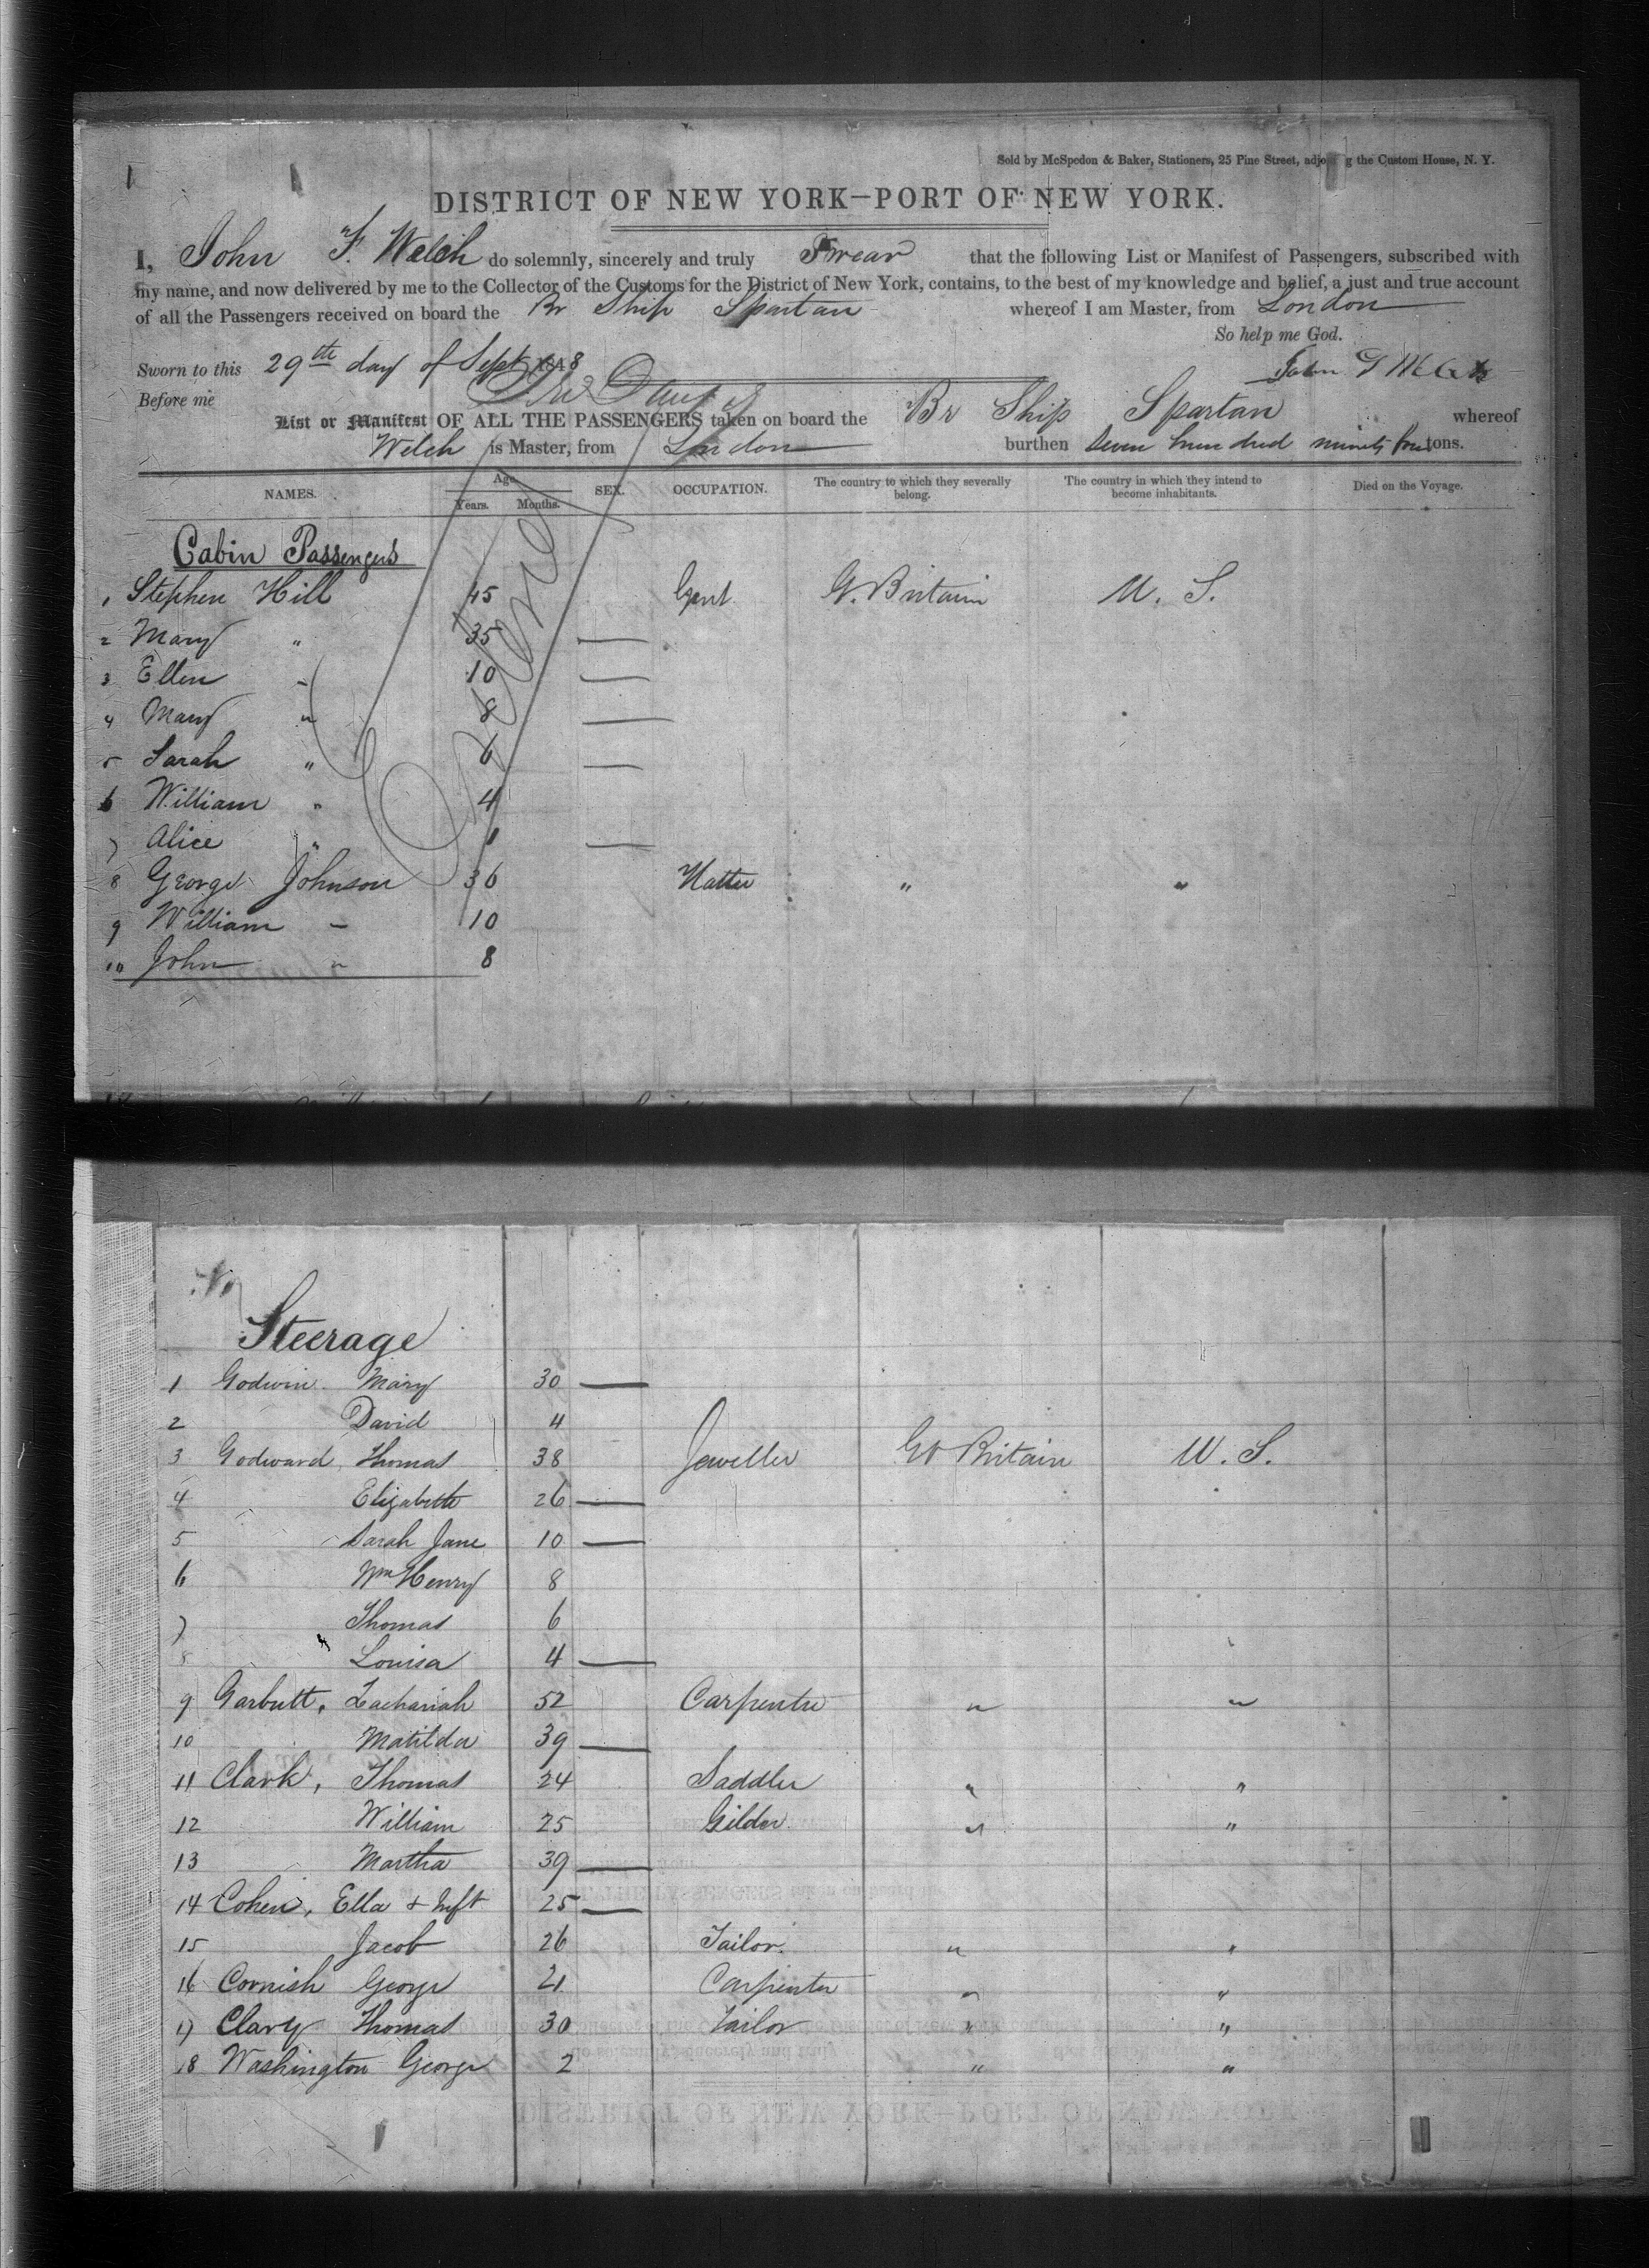 Sold by McSpedon & Baker, Stationers, 25 Pine Street, adjo g the Custom House, N. Y.
DISTRICT OF NEW YORK—PORT OF NEW YORK.
I, John F. Welch do solemnly, sincerely and truly Swear that the following List or Manifest of Passengers, subscribed with
my name, and now delivered by me to the Collector of the Customs for the District of New York, contains, to the best of my knowledge and belief, a just and true account
of all the Passengers received on board the Br Ship Spartan whereof I am Master, from London
So help me God.
Sworn to this 29th day of Sept 1848
Before me
List or Manifest OF ALL THE PASSENGERS taken on board the Br Ship Spartan whereof
Welch is Master, from London burthen Seven hundred ninety four tons.
NAMES. Age SEX. OCCUPATION. The country to which they severally belong. The country in which they intend to become inhabitants. Died on the Voyage.
Years. Months.
Cabin Passengers
1 Stephen Hill 45 Gent G. Britain U. S.
2 Mary " 35
3 Ellen " 10
4 Mary " 8
5 Sarah " 6
6 William " 4
7 Alice " 1
8 George Johnson 36 Hatter " "
9 William " 10
10 John " 8
Steerage
1 Godwin Mary 30
2 David 4
3 Godward Thomas 38 Jeweller Gt Britain U. S.
4 Elizabeth 26
5 Sarah Jane 10
6 Wm Henry 8
7 Thomas 6
8 Louisa 4
9 Garbutt, Zachariah 52 Carpenter " "
10 Matilda 39
11 Clark, Thomas 24 Saddler " "
12 William 25 Gilder " "
13 Martha 39
14 Cohen, Ella + Inft 25
15 Jacob 26 Tailor " "
16 Cornish George 21 Carpenter " "
17 Clary Thomas 30 Tailor " "
18 Washington George 2 " "